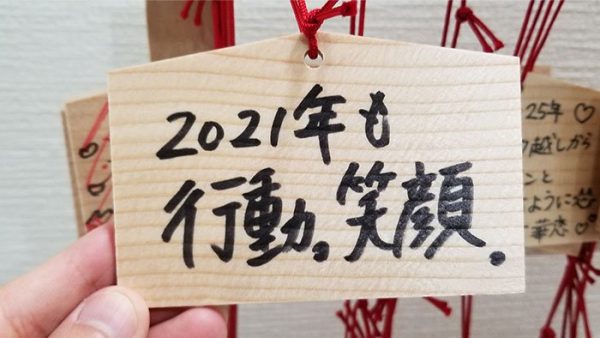 2021年も
行動。笑顔。
25年♡
越しから
ンと
ように
華恋